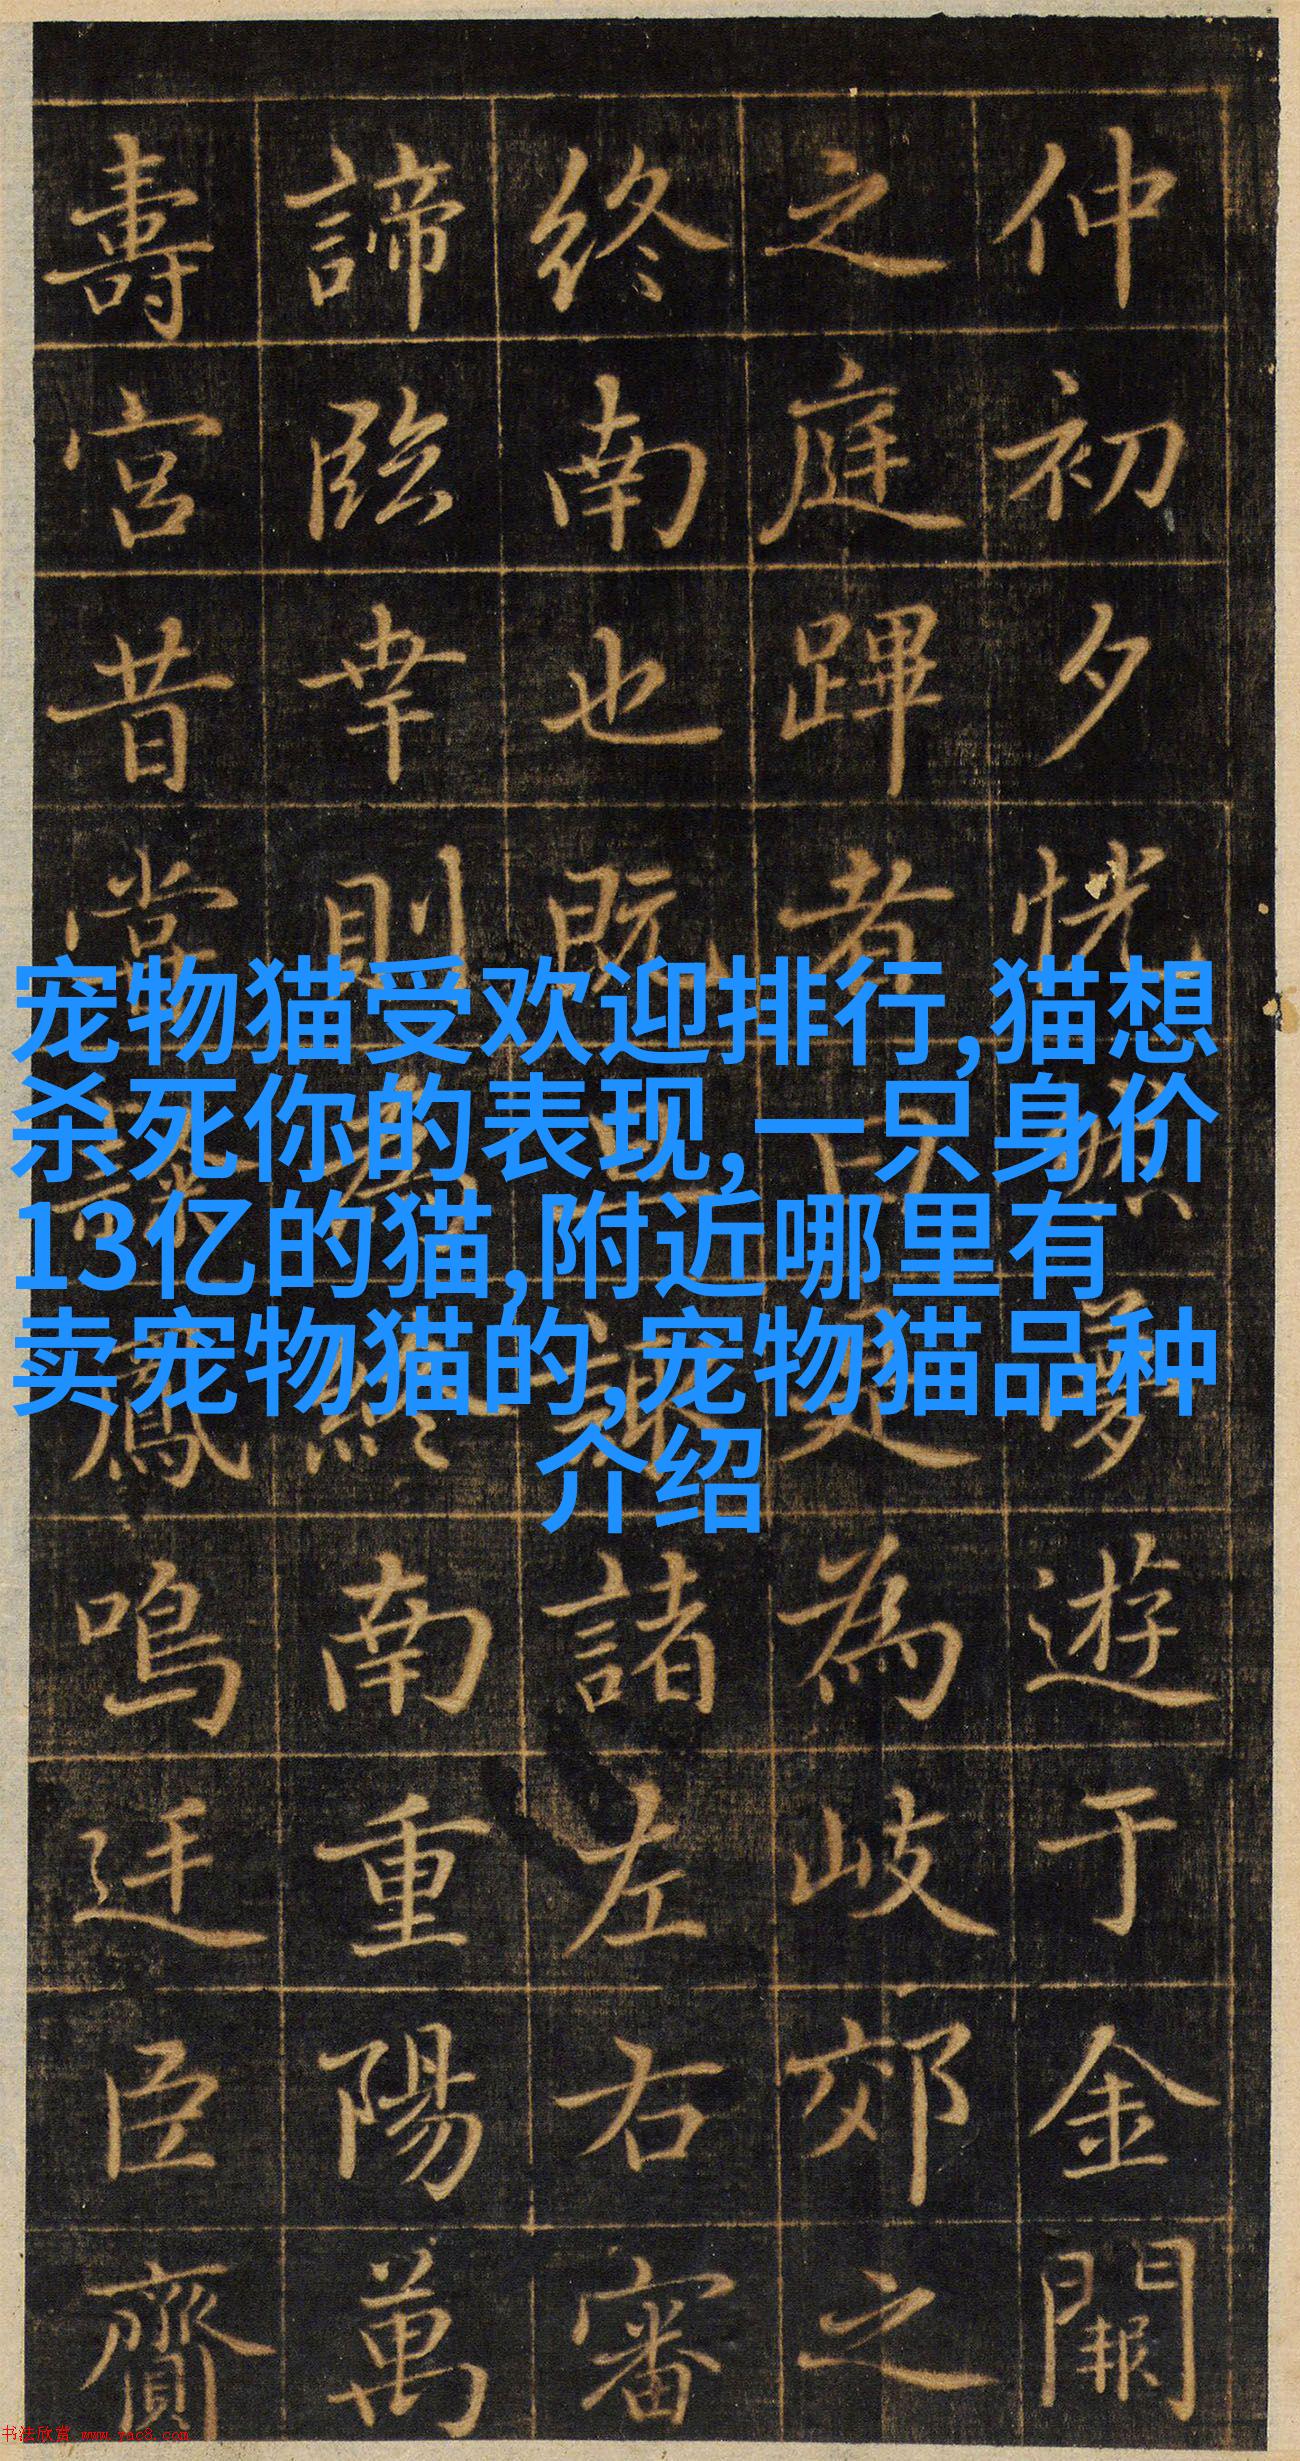 仲初夕恍然夢遊于金闕
之庭蹕者曰更為岐郊之
終南也既諸左右審
諦臨幸則終南重陽萬
壽宮昔嘗鳳鳴迋臣齎
宠物猫受欢迎排行,猫想
杀死你的表现,一只身价
13亿的猫,附近哪里有
卖宠物猫的,宠物猫品种
介绍
书法欣赏 www.yac8.com